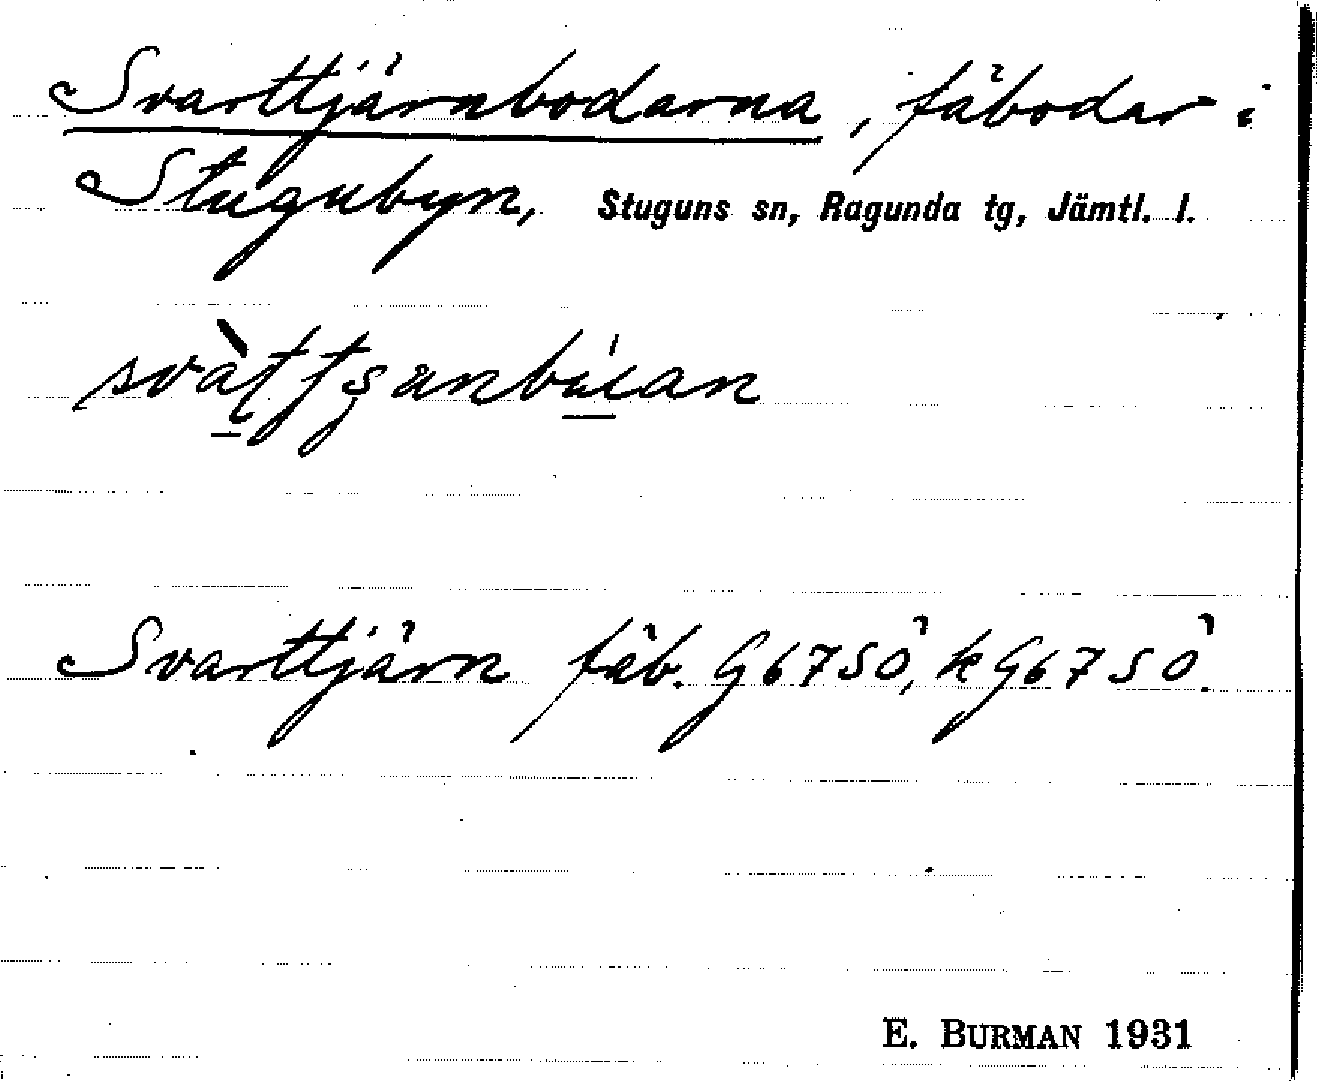 Svarttjärnbodarna, fäbodar i
Stugubyn, Stuguns sn, Ragunda tg, Jämtl. l.
Svarttjärn fäb. G67SÖ, kG67SÖ.
E. BURMAN 1931